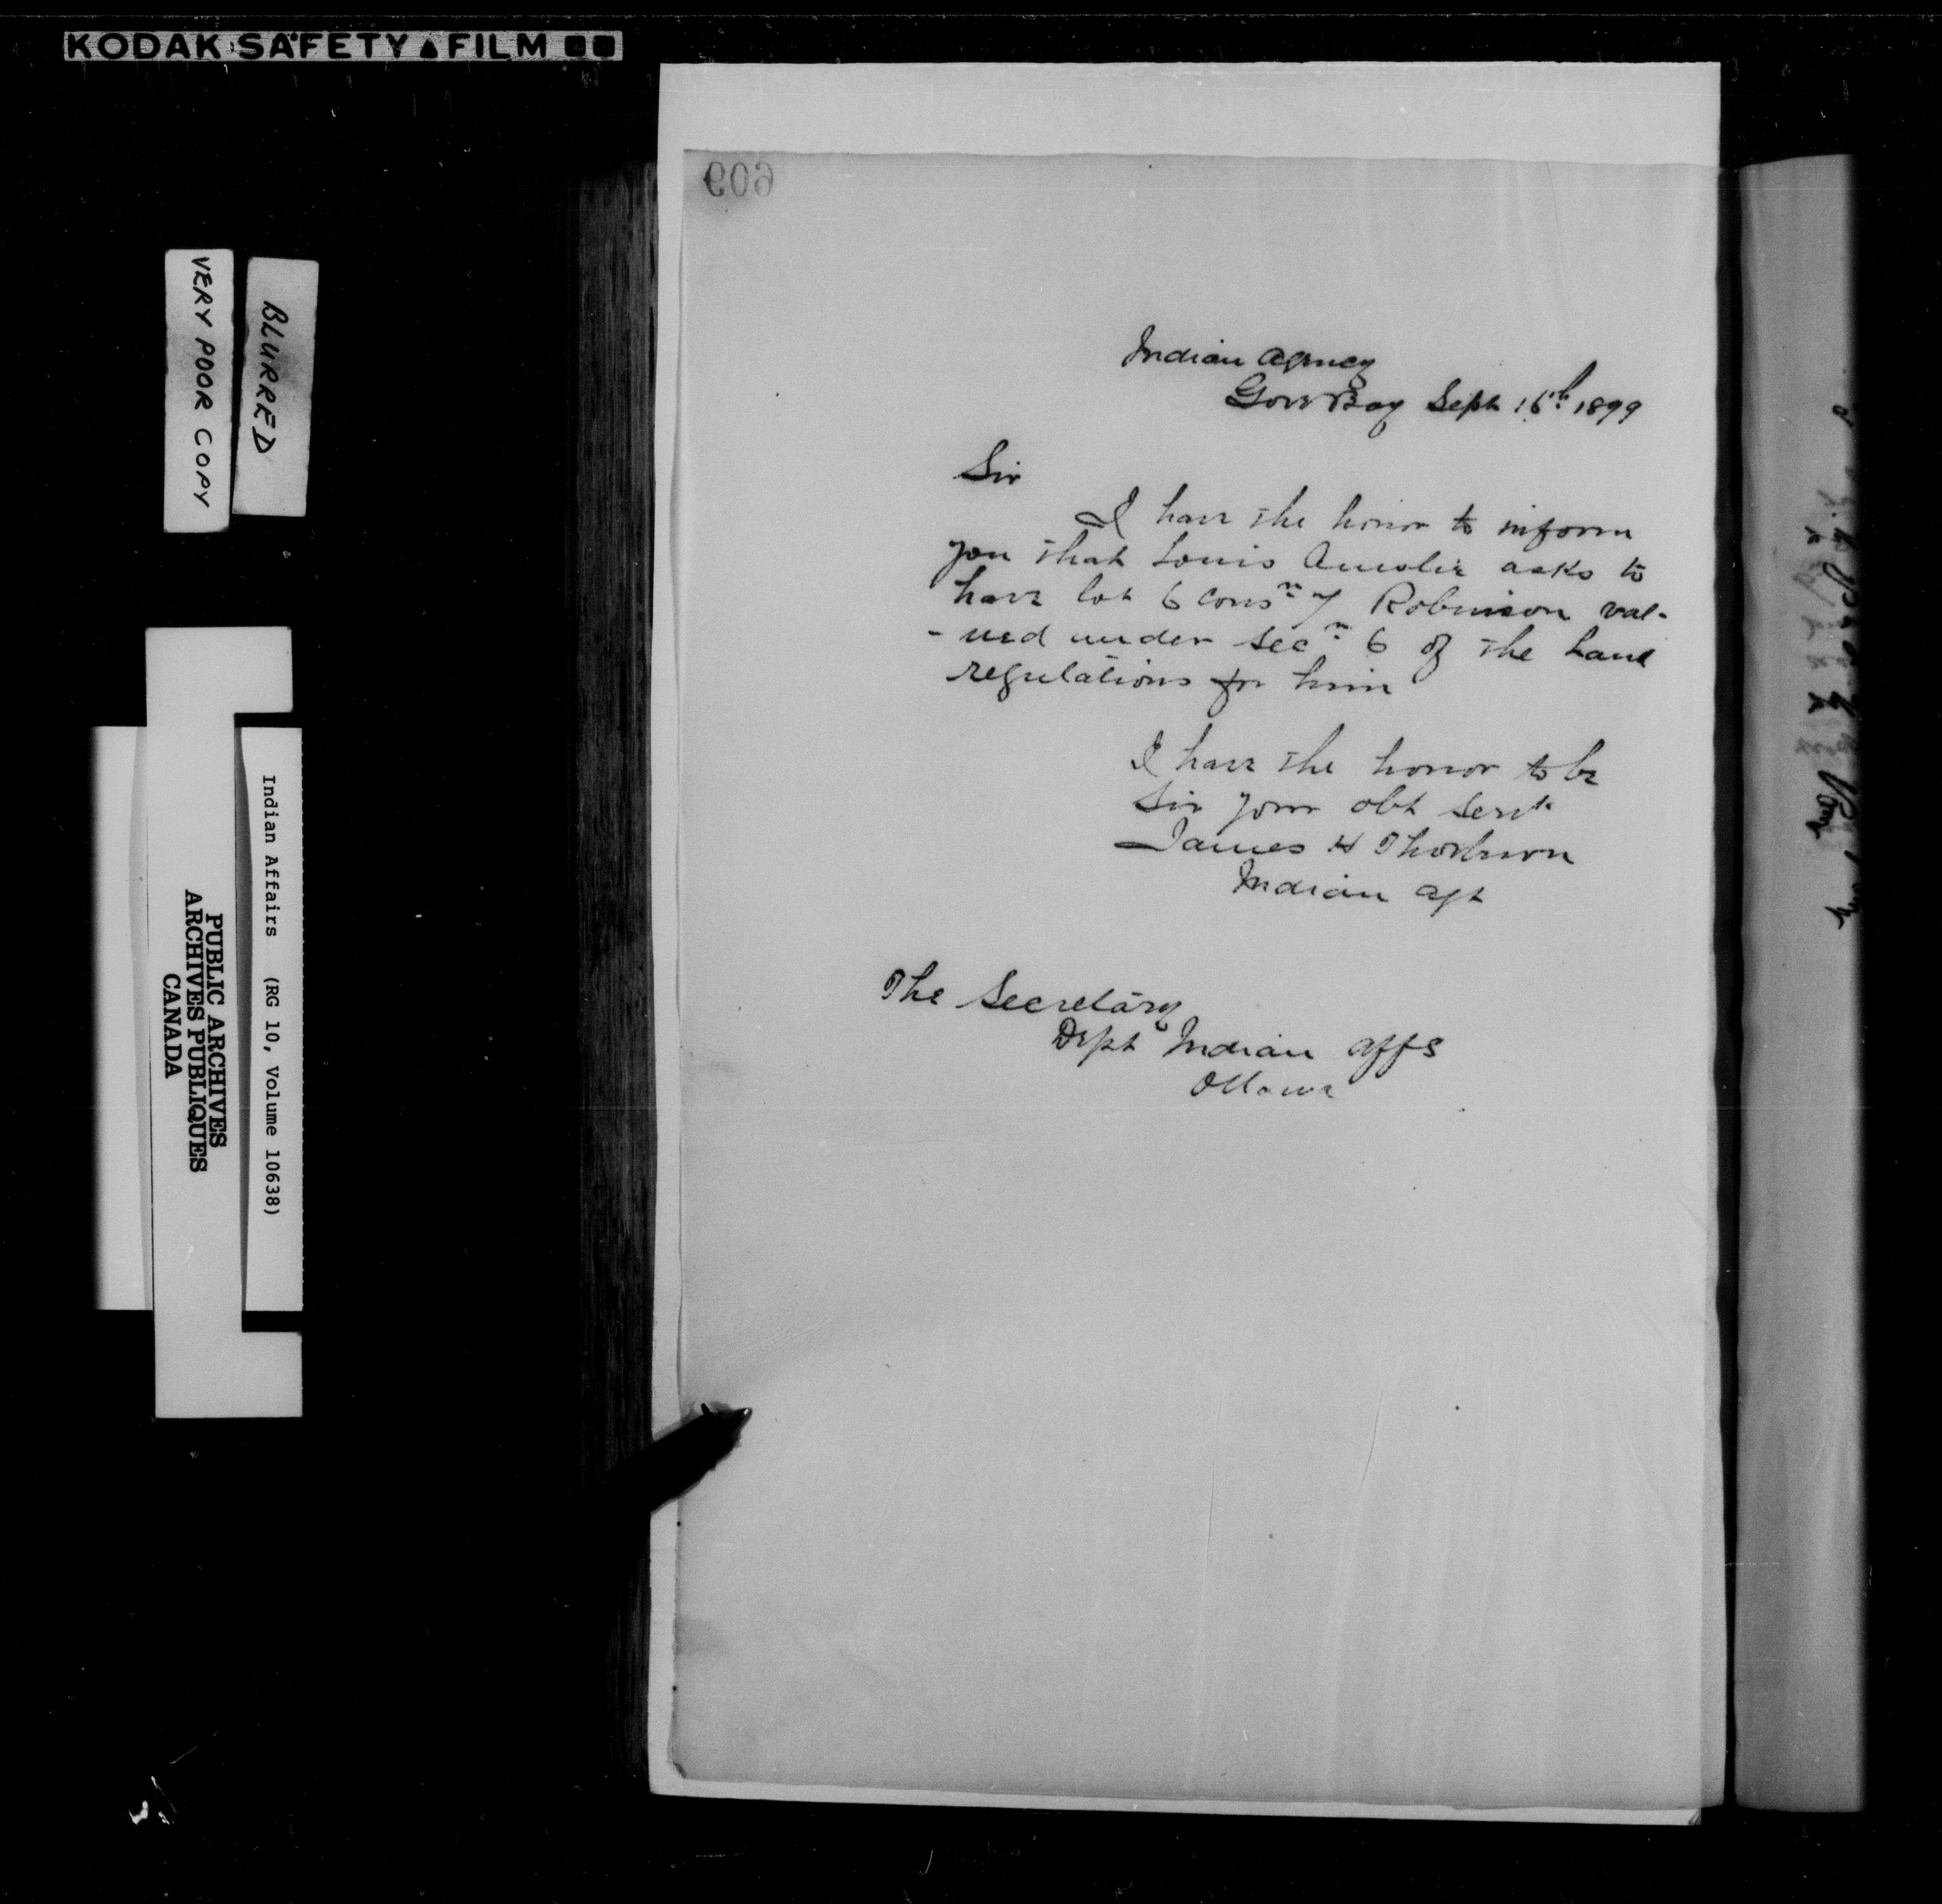 KODAK SAFETY FILM
VERY POOR COPY
BLURRED
Indian Affairs (RG 10, Volume 10638)
PUBLIC ARCHIVES
ARCHIVES PUBLIQUES
CANADA
609
Indian Agency
Gore Bay Sept 16th 1899
Sir
I have the honor to inform
you that Louis asks to
have lot 6 7 Robinson val-
-ued under Secn 6 of the Land
regulations for him
I have the honor to be
Sir your obt Servt
James H Thorburn
Indian agt
The Secretary
Dept Indian affs
Ottawa